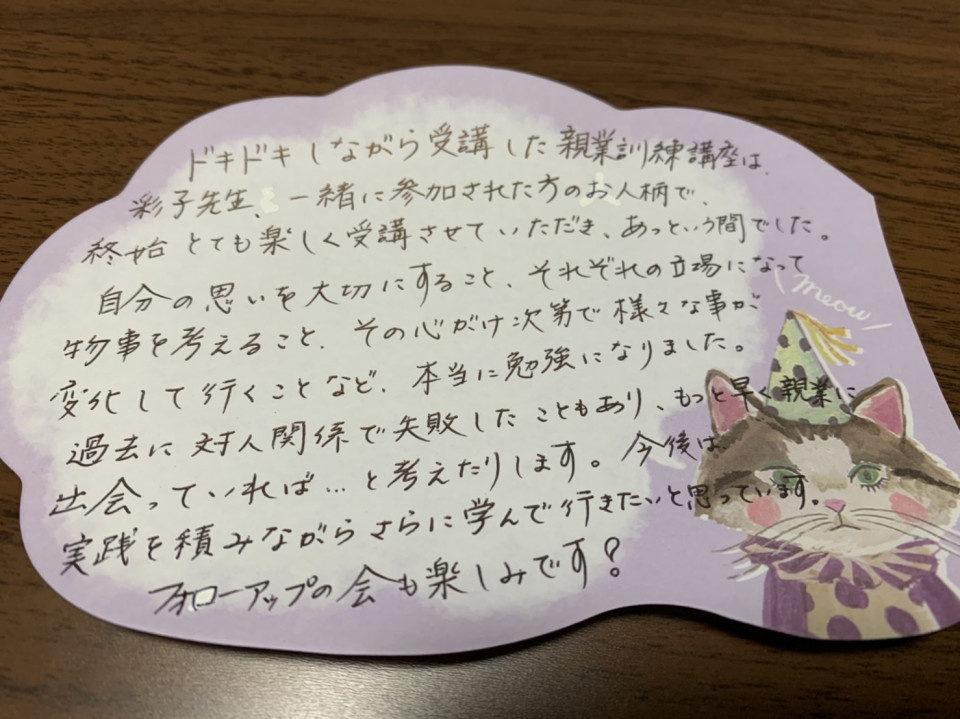 ドキドキしながら受講した親業訓練講座は、
彩子先生、と一緒に参加された方のお人柄で、
終始とても楽しく受講させていただき、あっという間でした。
自分の思いを大切にすること、それぞれの立場になって
物事を考えること、その心がけ次第で様々な事が
変化して行くことなど、本当に勉強になりました。
過去に対人関係で失敗したこともあり、もっと早く親業に
出会っていれば…と考えたりします。今後は
実践を積みながらさらに学んで行きたいと思っています。
フォローアップの会も楽しみです?
meow